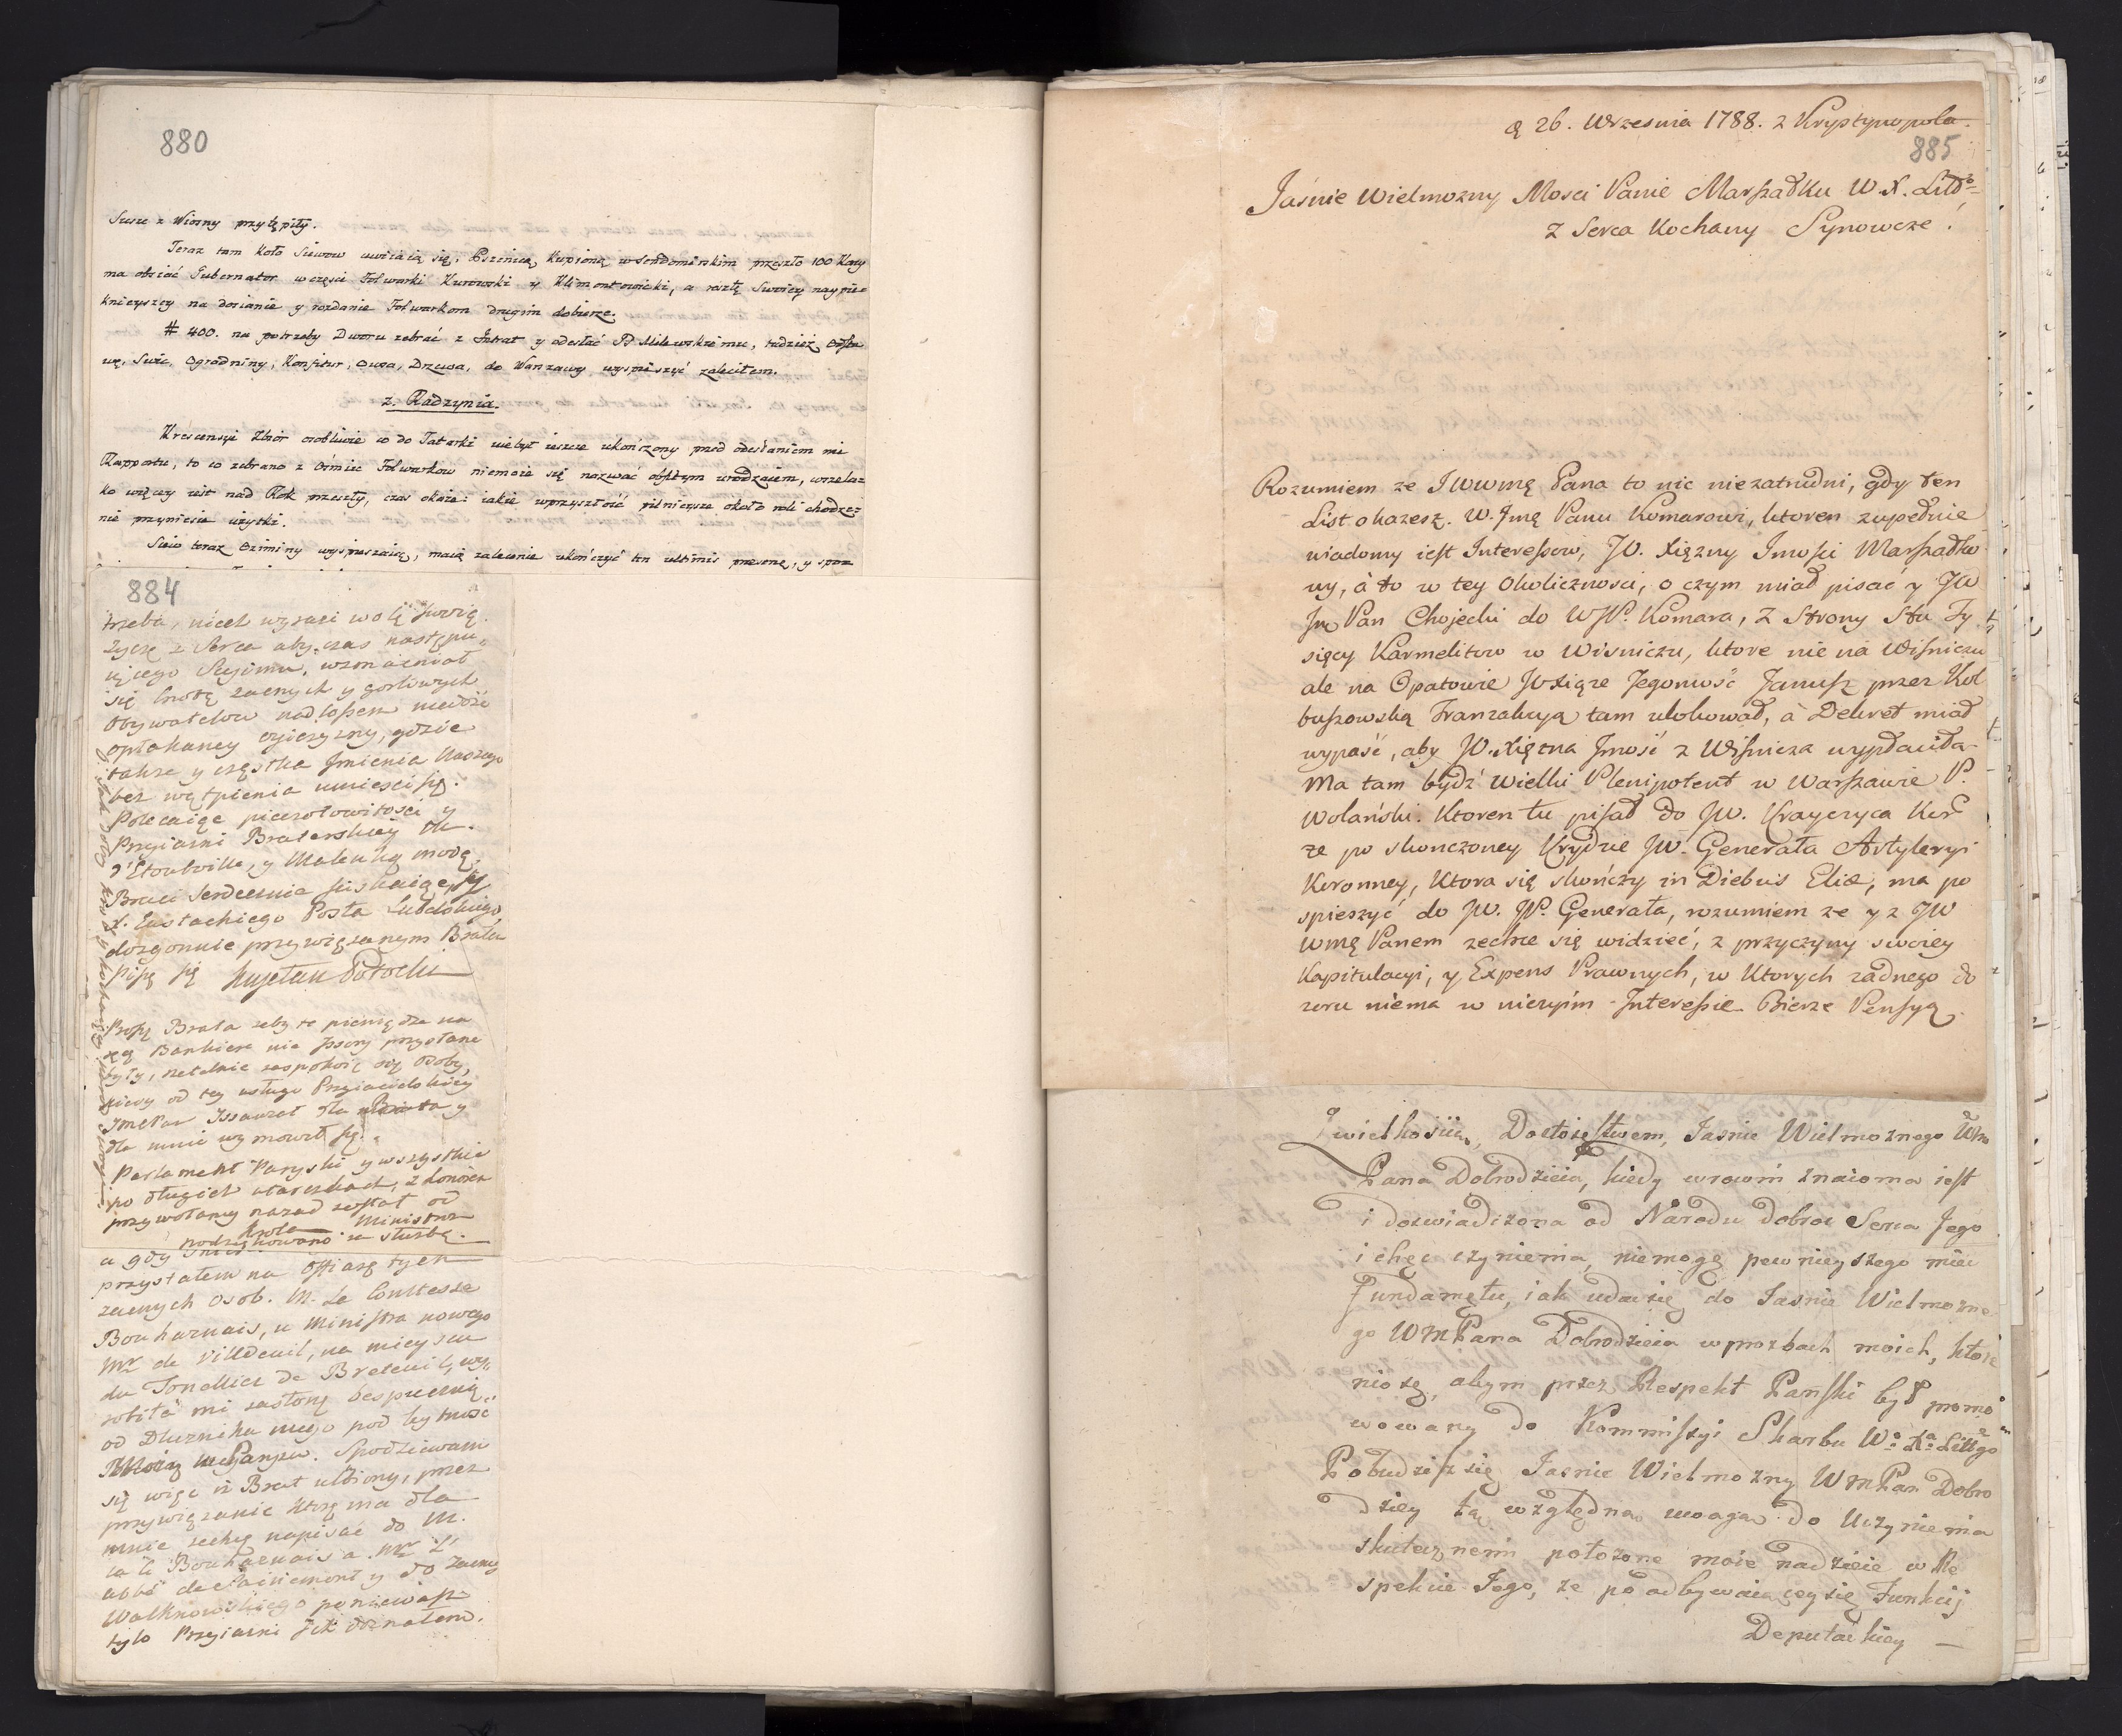 880
Susze z Wiosny przytępiły.
Teraz tam koło Siewow uwiiaią się; Pszenicą kupioną w Sendomirskim przeszło 100 Korcy
ma obsiać Gubernator wczęści Folwarki Kurowski y Klimontowicki, a resztę Swoiey naypię-
knieyszey na dosianie y rozdanie Folwarkom drugim dobierze.
# 400. na potrzeby Dworu zebrać z Intrat y odesłać JP Milewskiemu, tudzież
wę, Swic, Ogrodniny, Konfitur, Owsa, Drzewa, do Warszawy wyspieszyć zaleciłem.
z. Radzynia.
Krescensyi Zbior osobliwie co do Tatarki niebył ieszcze ukończony przed odesłaniem mi
Rapportu, to co zebrano z Ośmiu Folwarkow niemoże się nazwać obfitym urodzaiem, wszela-
ko więcey iest nad Rok przeszły, czas okaże: iakie wprzyszłość pilnieysze około roli chodze-
nie przyniesie użytki.
Siew teraz Oziminy wyspieszaią, maią zalecenie ukończyć ten ultimis praesentis, y spor
884
trzeba, niech wyrazi wolę swoię.
Zyczę z Serca aby czas następu-
iącego Seyimu, wzmacniał
się Cnotą zacnych y gorliwych
Obywatelow nad losem niedość
opłakaney oyczyzny, gdzie
także y cząstka Imienia Naszego
bez wątpienia umieści się.
Polecaiąc pieczołowitości y
Przyiazni Braterskiey
d'Etoutville, y Maleńką moię,
Braci Serdecznie sciskaiąc, y
X. Eustachiego Posła Lubelskiego,
dozgonnie przywiązanym Bratem
piszę się Kajetan Potocki
Proszę Brata zeby te pieniądze na
Bankiera nie Issory przysłane
były, rzetelnie zaspokoię się Osoby,
od tey usługi Przyiacielskiey
ImcPan Issaurat dla Brata y
dla mnie wymowił się.
Parlament Paryski y wszystkie
po długich utarczkach, z honorem
przywołany nazad został od
Krola Ministrze
podziękowano za służbę.
a gdy
przystałem na Offiarę tych
zacnych Osob. M. La Comtesse
Bouharnais, u Ministra nowego
Mr de Villdeuil, na mieyscu
du Tonellier de Breteuil, wy-
robiła mi zasłonę bespieczną
od Dłużnika mego pod bytność
moią w Paryżu. Spodziewam
się więc iż Brat ulubiony, przez
przywiązanie ktorę ma dla
mnie zechcę napisać do M.
la C Bouharnais a Mr L'
abbé de y do zacney
Walknowskiego ponieważ
tylo Przyiazni Ich doznałem.
d 26. Września 1788. z Krystynopola.
885
Jaśnie Wielmozny Mosci Panie Marszałku W. X. Litt
z Serca Kochany Synowcze!
Rozumiem ze JWWmę Pana to nic niezatrudni, gdy ten
List okazesz. W. Jmę Panu Komarowi, ktoren zupełnie
wiadomy iest Interessow, JO. Xięzny Jmosci Marszałko
wy, à to w tey Okoliczności, o czym miał pisać y JW
Jm Pan Chojecki do WJP. Komara, z Strony Stu Ty
sięcy Karmelitow w Wisniczu, ktore nie na Wisniczu
ale na Opatowie JO Xiąze Jegomość Janusz przez Kol
buszowską Tranzakcyą tam ulokował, à Dekret miał
wypaść, aby JO. Xięzna Jmość z Wisnicza wypłaciła-
Ma tam bydź Wielki Plenipotent w Warszawie P.
Wolański. Ktoren tu pisał do JW. Krayczyca Kor
ze po skonczoney Krydzie JW. Generała Artyleryi
Koronney, Ktora się skończy in Diebus Elia, ma po
spieszyć do JW. JP. Generała, rozumiem ze y z JW
Wmę Panem zechce się widzieć, z przyczyny swoiey
Kapitulacyi, y Expens Prawnych, w Ktorych zadnego do
zoru niema w niczyim Interessie Bierze Pensyą.
z wielkością, Dostoieństwem, Jasnie Wielmoznego Wm
Pana Dobrodzieia, kiedy wrowni znaioma iest
i doswiadczona od Narodu dobroć Serca Jego
i chęć czynienia, niemogę pewnieyszego mieć
Fundamętu, iak udać się do Jasnie Wielmozne
go WMPana Dobrodzieia wprozbach moich, ktore
niosę, abym przez Respekt Pański był promo
wowany do Kommissyi Skarbu Wo Xa Littgo
Pobudzisz się Jasnie Wielmozny WMPan Dobro
dziey tą względną uwagą do Uczynienia
skutecznemi połozone moie nadzieie w Re
spekcie Jego, ze po odbywaiącey się Funkcij
Deputackiey —